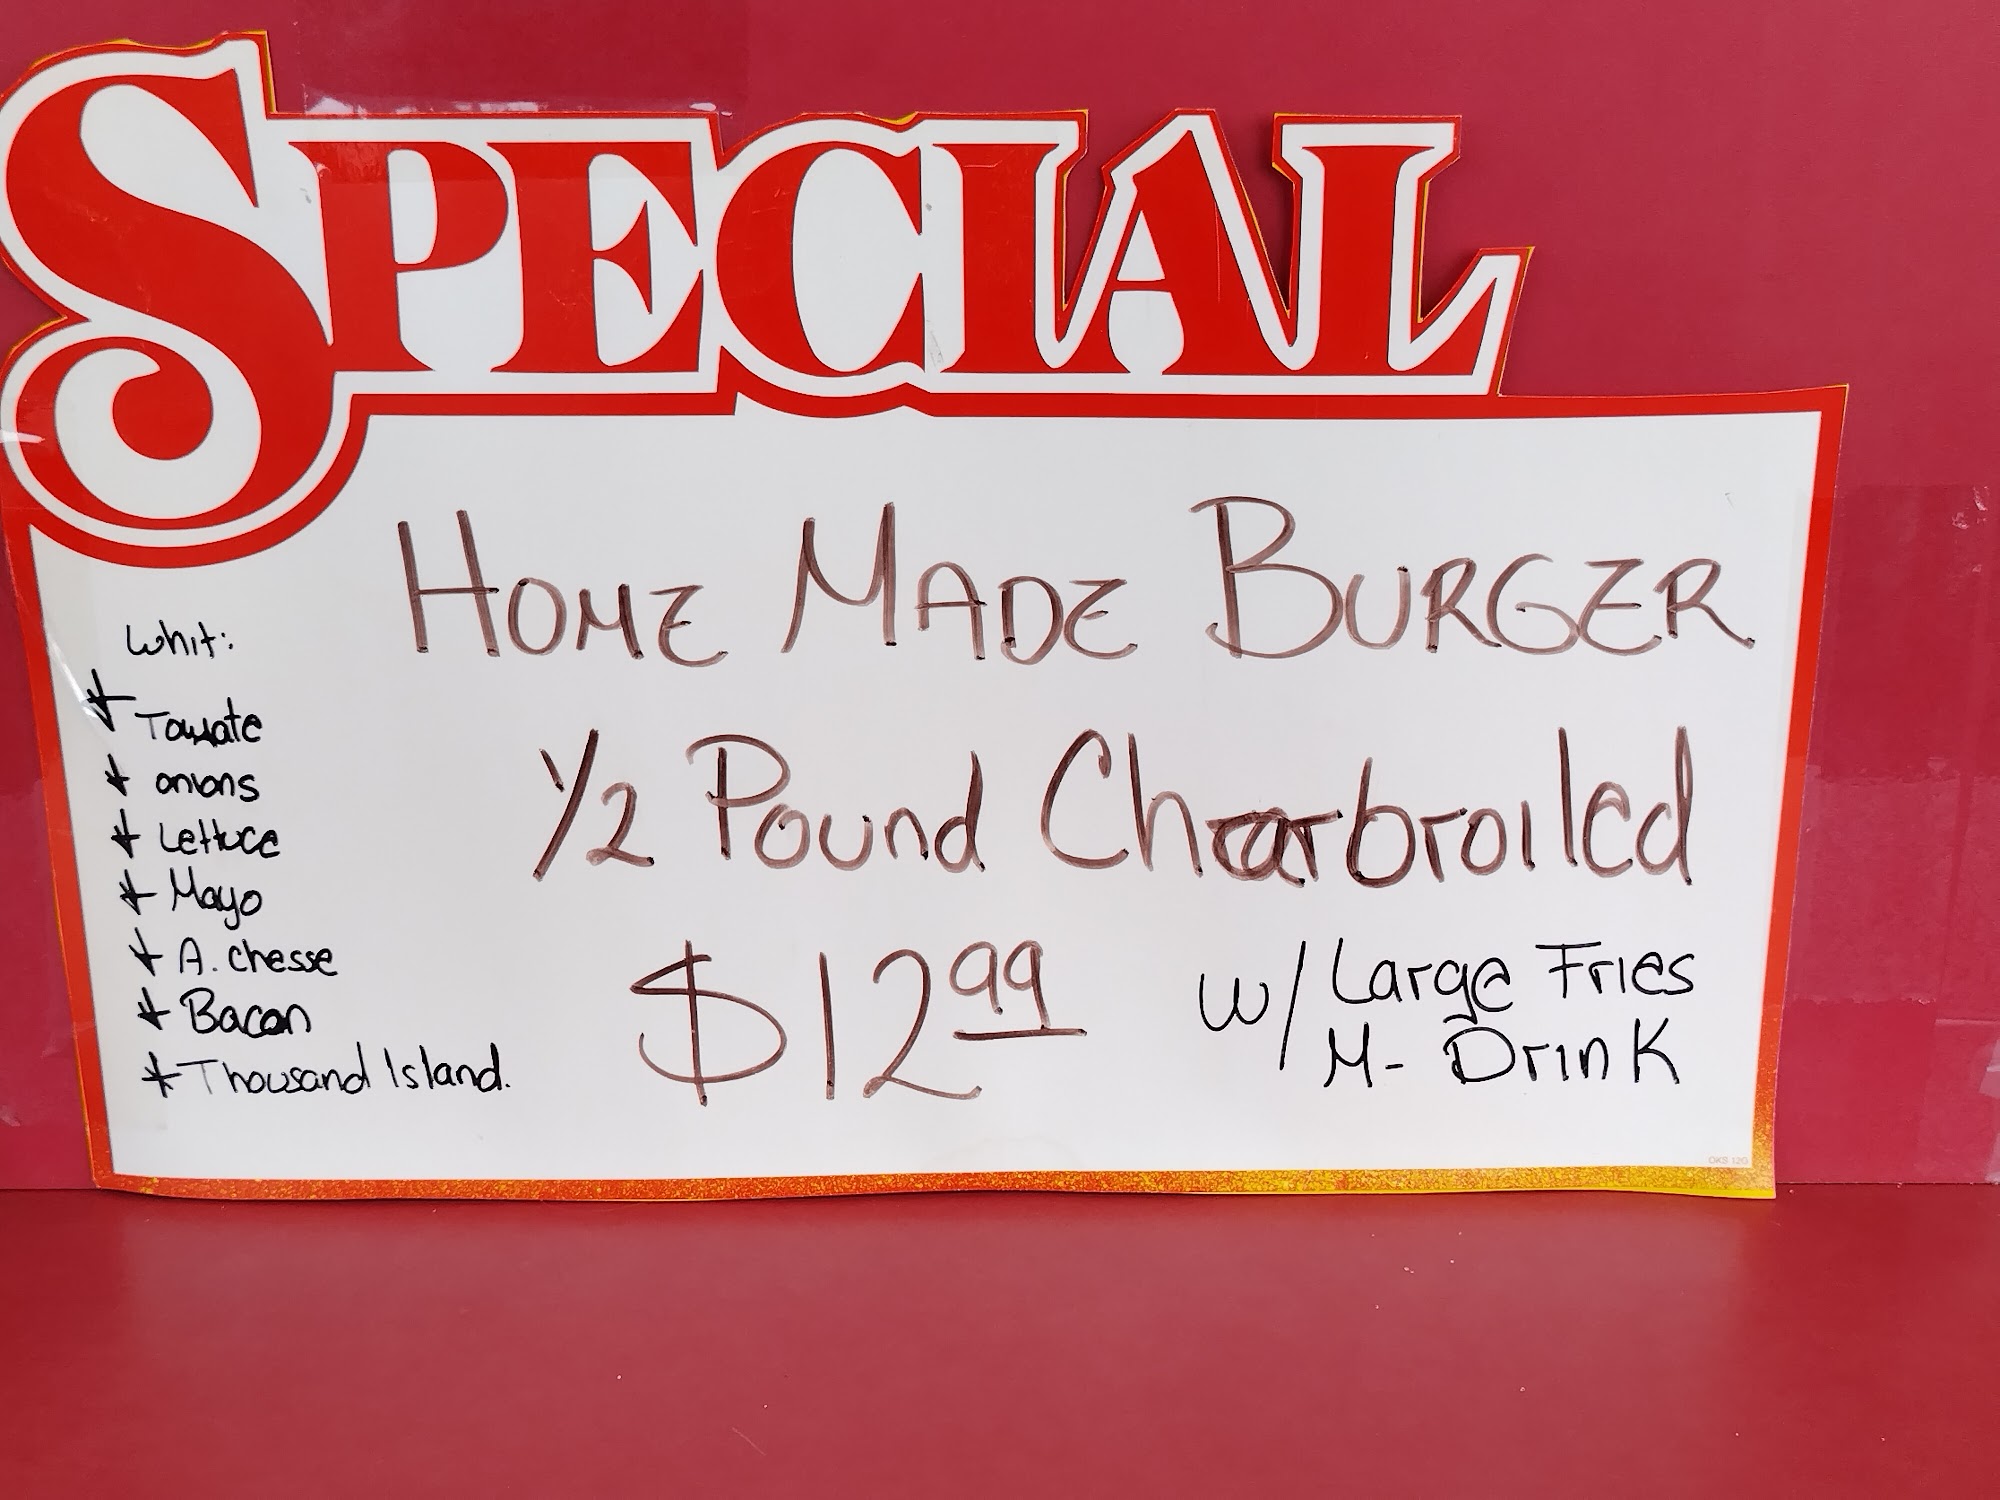 SPECIAL
HOME MADE BURGER
1/2 Pound Charbroiled
$12.99
w/ Large Fries
M- Drink
Whit:
* Tomate
* onions
* Lettuce
* Mayo
* A. chesse
* Bacon
* Thousand Island.
OKS 12G